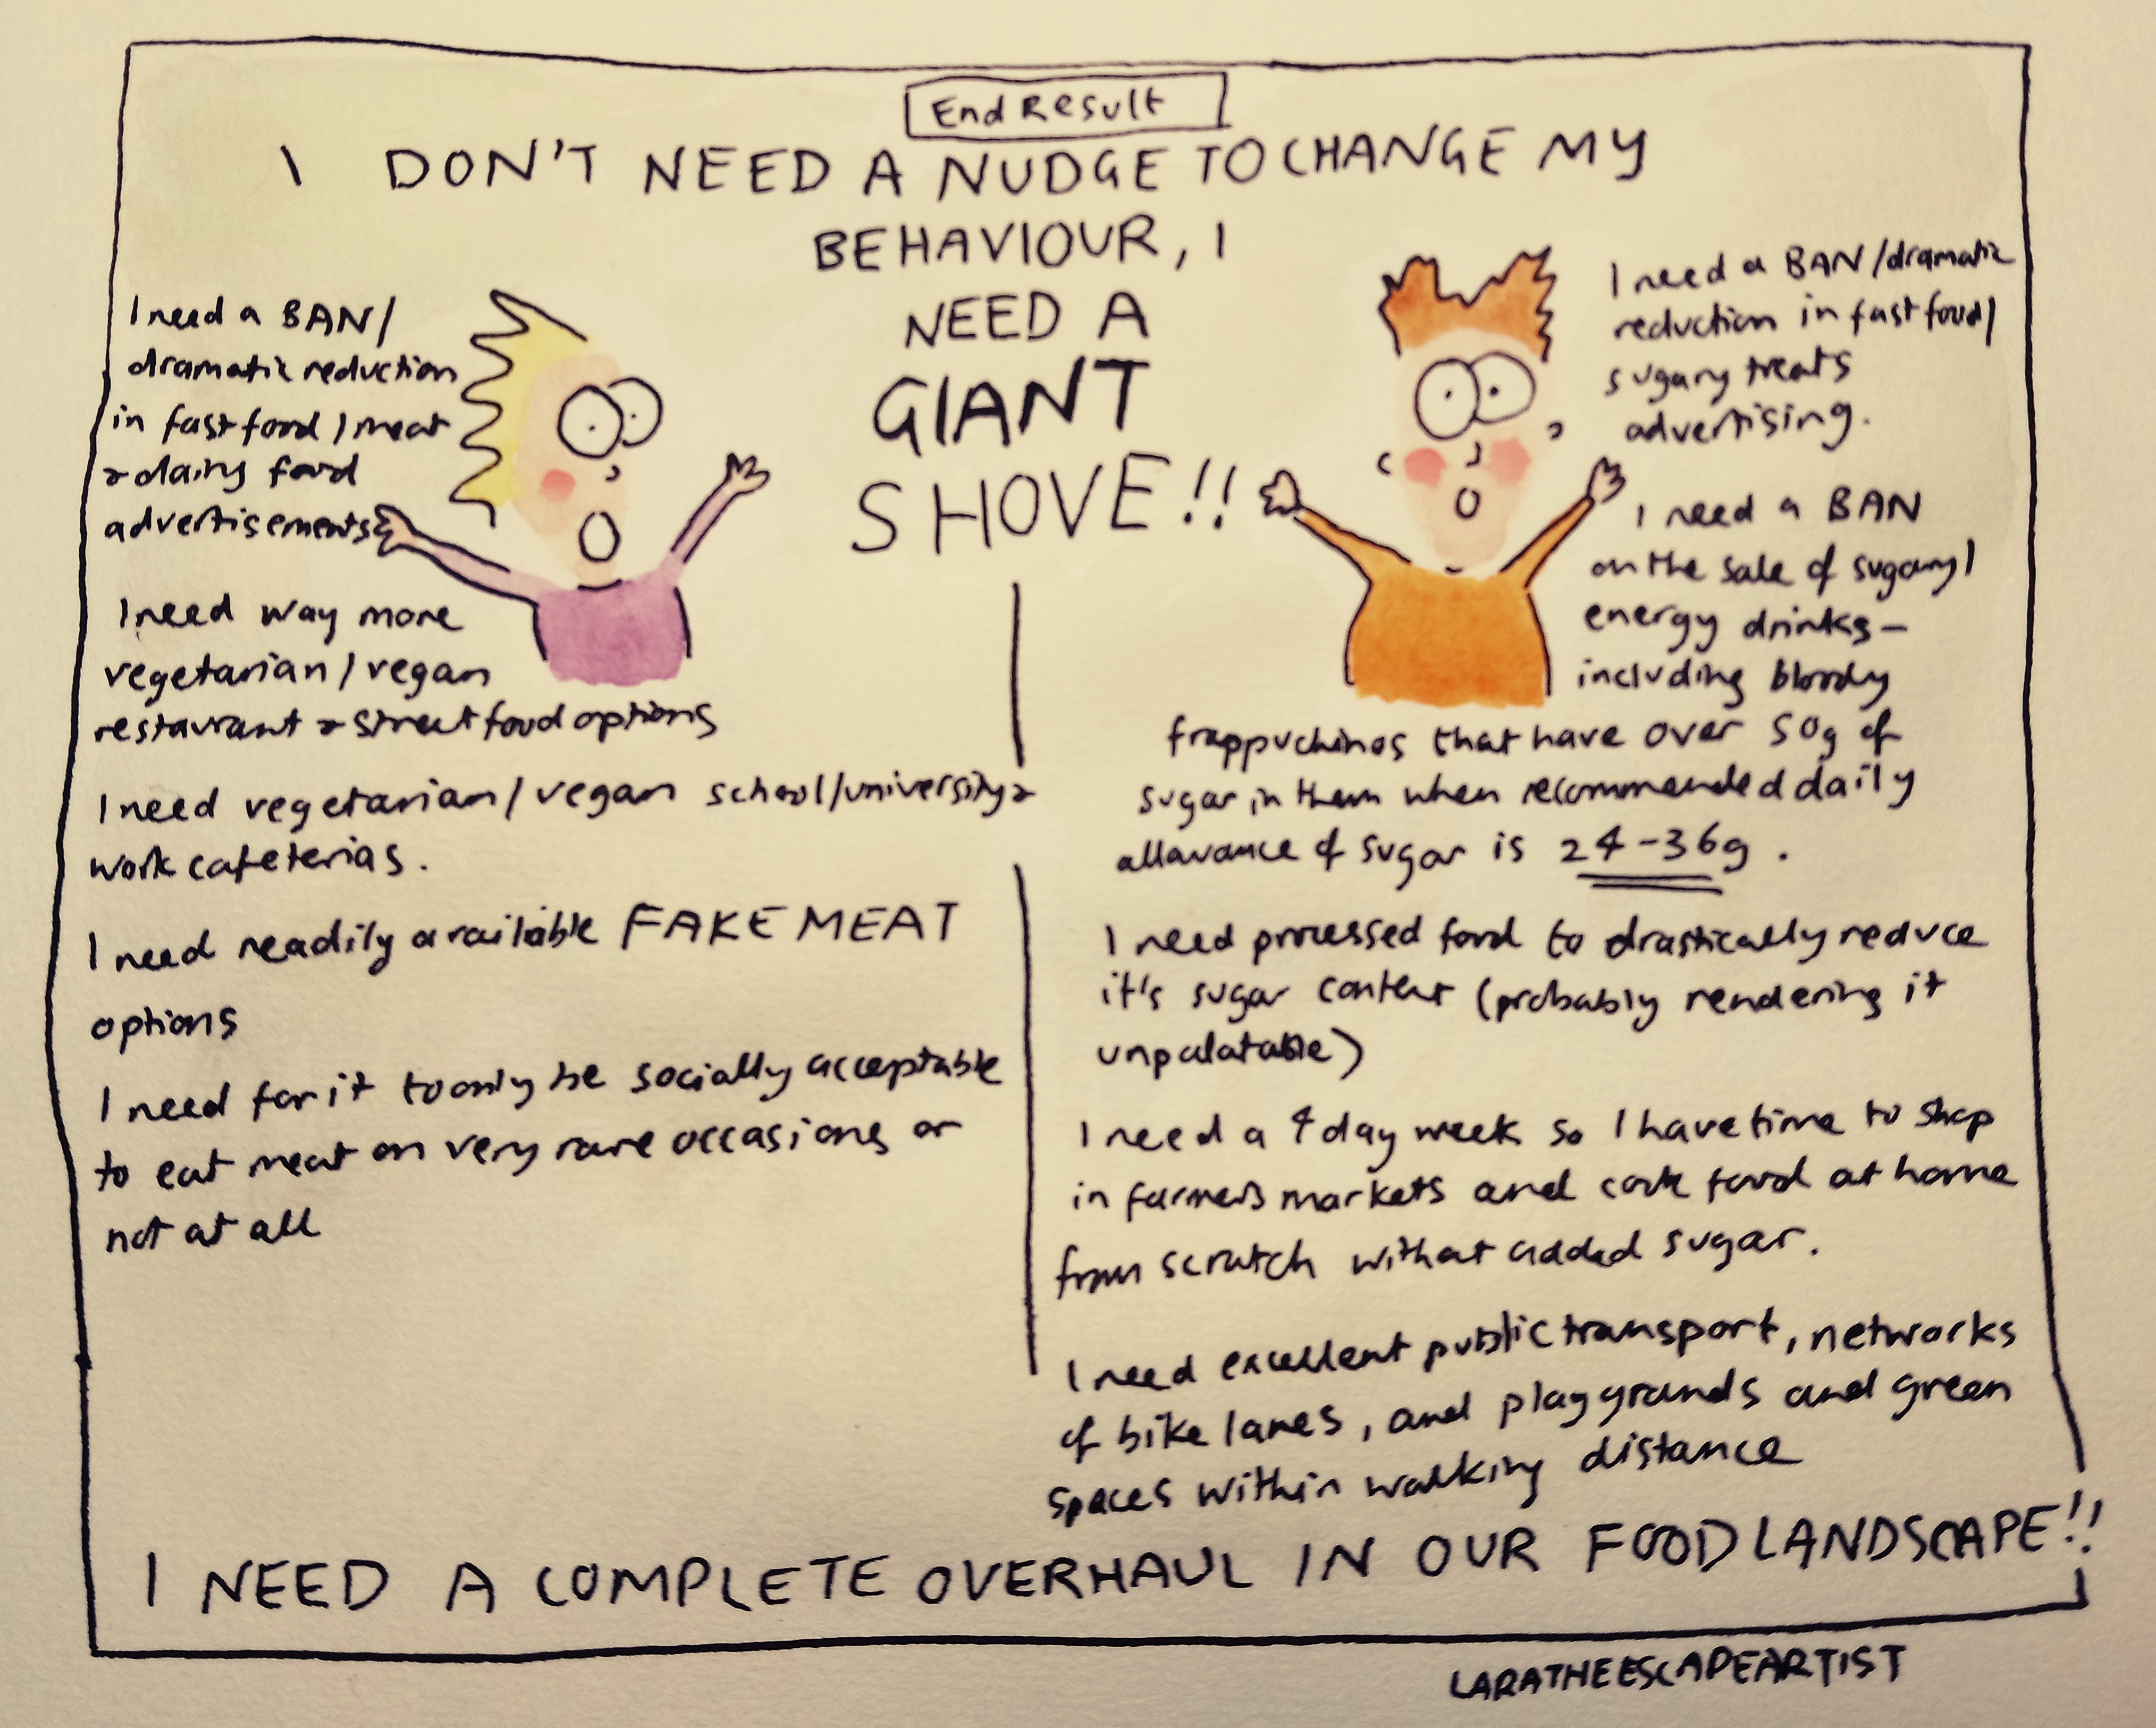 End Result
I DON'T NEED A NUDGE TO CHANGE MY
BEHAVIOUR, I
NEED A
GIANT
SHOVE!!
I need a BAN/
dramatic reduction
in fast food / meat
& dairy food
advertisements
I need way more
vegetarian / vegan
restaurant & street food options
I need vegetarian / vegan school/university &
work cafeterias.
I need readily available FAKE MEAT
options
I need for it to only be socially acceptable
to eat meat on very rare occasions or
not at all
I need a BAN/dramatic
reduction in fast food/
sugary treats
advertising.
I need a BAN
on the sale of sugary/
energy drinks –
including bloody
frappuchinos that have over 50g of
sugar in them when recommended daily
allowance of sugar is 24-36g.
I need processed food to drastically reduce
it's sugar content (probably rendering it
unpalatable)
I need a 4 day week so I have time to shop
in farmers markets and cook food at home
from scratch without added sugar.
I need excellent public transport, networks
of bike lanes, and playgrounds and green
spaces within walking distance
I NEED A COMPLETE OVERHAUL IN OUR FOOD LANDSCAPE!!
LARATHEESCAPEARTIST